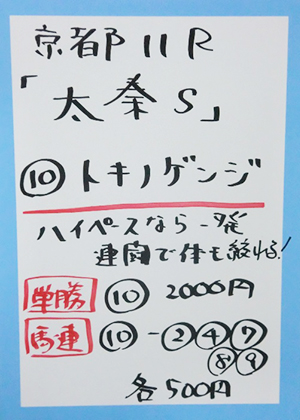 京都11R
「太秦S」
⑩トキノゲンジ
ハイペースなら一発
連闘で体も絞れる!
単勝 ⑩ 2000円
馬連 ⑩-②④⑦
⑧⑨
各500円